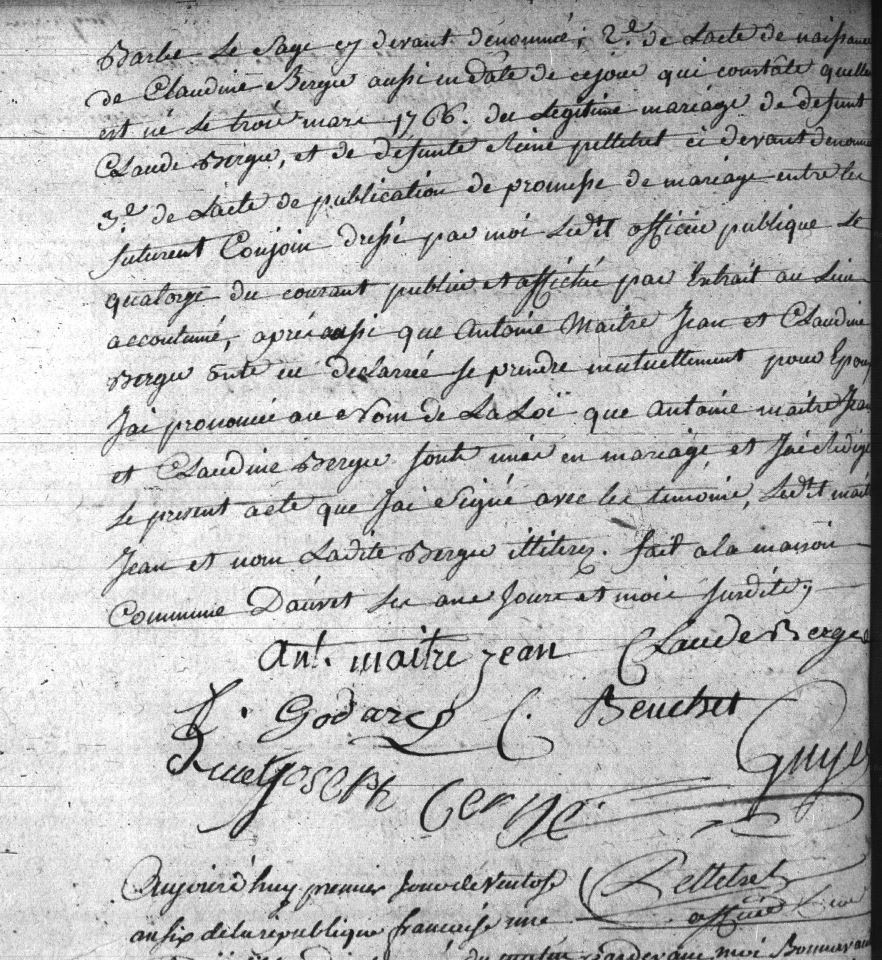 Barbe Le Sage cy devant dénommé; 2e. de Lacte de naissance
de Claudine Bergue aussi en dâte de cejour qui constâte quelle
est né Le trois mars 1766. du Legitime mariage de defunt
Claude Bergue, et de défunte Reine pelletret ci devant dénommé
3e. de Lacte de publication de promesse de mariage entre les
futurent Conjoin dressé par moi Ledit officier publique Le
quatorze du courant publié et affiché par Extrait au Lieu
accoutumé, après aussi que Antoine Maitre Jean et Claudine
Bergue onte declarée se prendre mutuellement pour Epoux
Jai prononcée au Nom de La Loï que Antoine maitre Jean
et Claudine Bergue sonte unies en mariage et Jai Rédigé
Le present acte que Jai Signé avec les temoins, Ledit maitre
Jean et nom Ladite Bergue illiterez. fait a la maison
Commune Dauvet les ans Jours et mois susdits;
Ant. maitre jean Claude Bergue
Godard C. Beuchet
Joseph Guye
Pelletret
Aujourd'huy premier Jour de Ventose
an six de la république française une officier
du matin pardevant moi